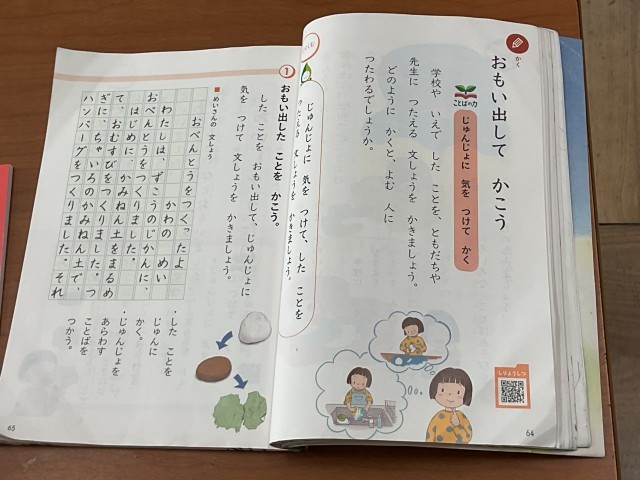 かく
おもい出して かこう
ことばの力
じゅんじょに 気を つけて かく
学校や いえで した ことを、ともだちや
先生に つたえる 文しょうを かきましょう。
どのように かくと、よむ 人に
つたわるでしょうか。
しりょうしつ
64
じゅんじょに 気を つけて、した ことを
つたえる 文しょうを かきましょう。
① おもい出した ことを かこう。
した ことを おもい出して、じゅんじょに
気を つけて 文しょうを かきましょう。
■ めいさんの 文しょう
おべんとうをつくったよ
かわの めい
わたしは、ずこうのじかんに、
おべんとうをつくりました。
はじめに、かみねん土をまるめ
て、おむすびをつくりました。つ
ぎに、ちゃいろのかみねん土で、
ハンバーグをつくりました。それ
・した ことを
じゅんに
かく。
・じゅんじょを
あらわす
ことばを
つかう。
65